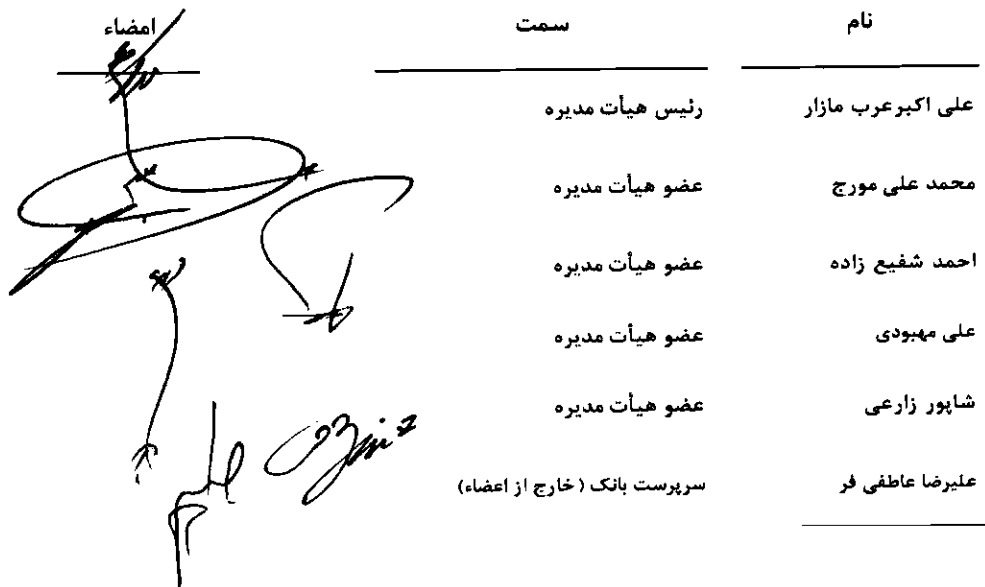 نام سمت امضاء
علی اکبر عرب مازار رئیس هیأت مدیره
محمد علی مورج عضو هیأت مدیره
احمد شفیع زاده عضو هیأت مدیره
علی مهبودی عضو هیأت مدیره
شاپور زارعی عضو هیأت مدیره
علیرضا عاطفی فر سرپرست بانک (خارج از اعضاء)